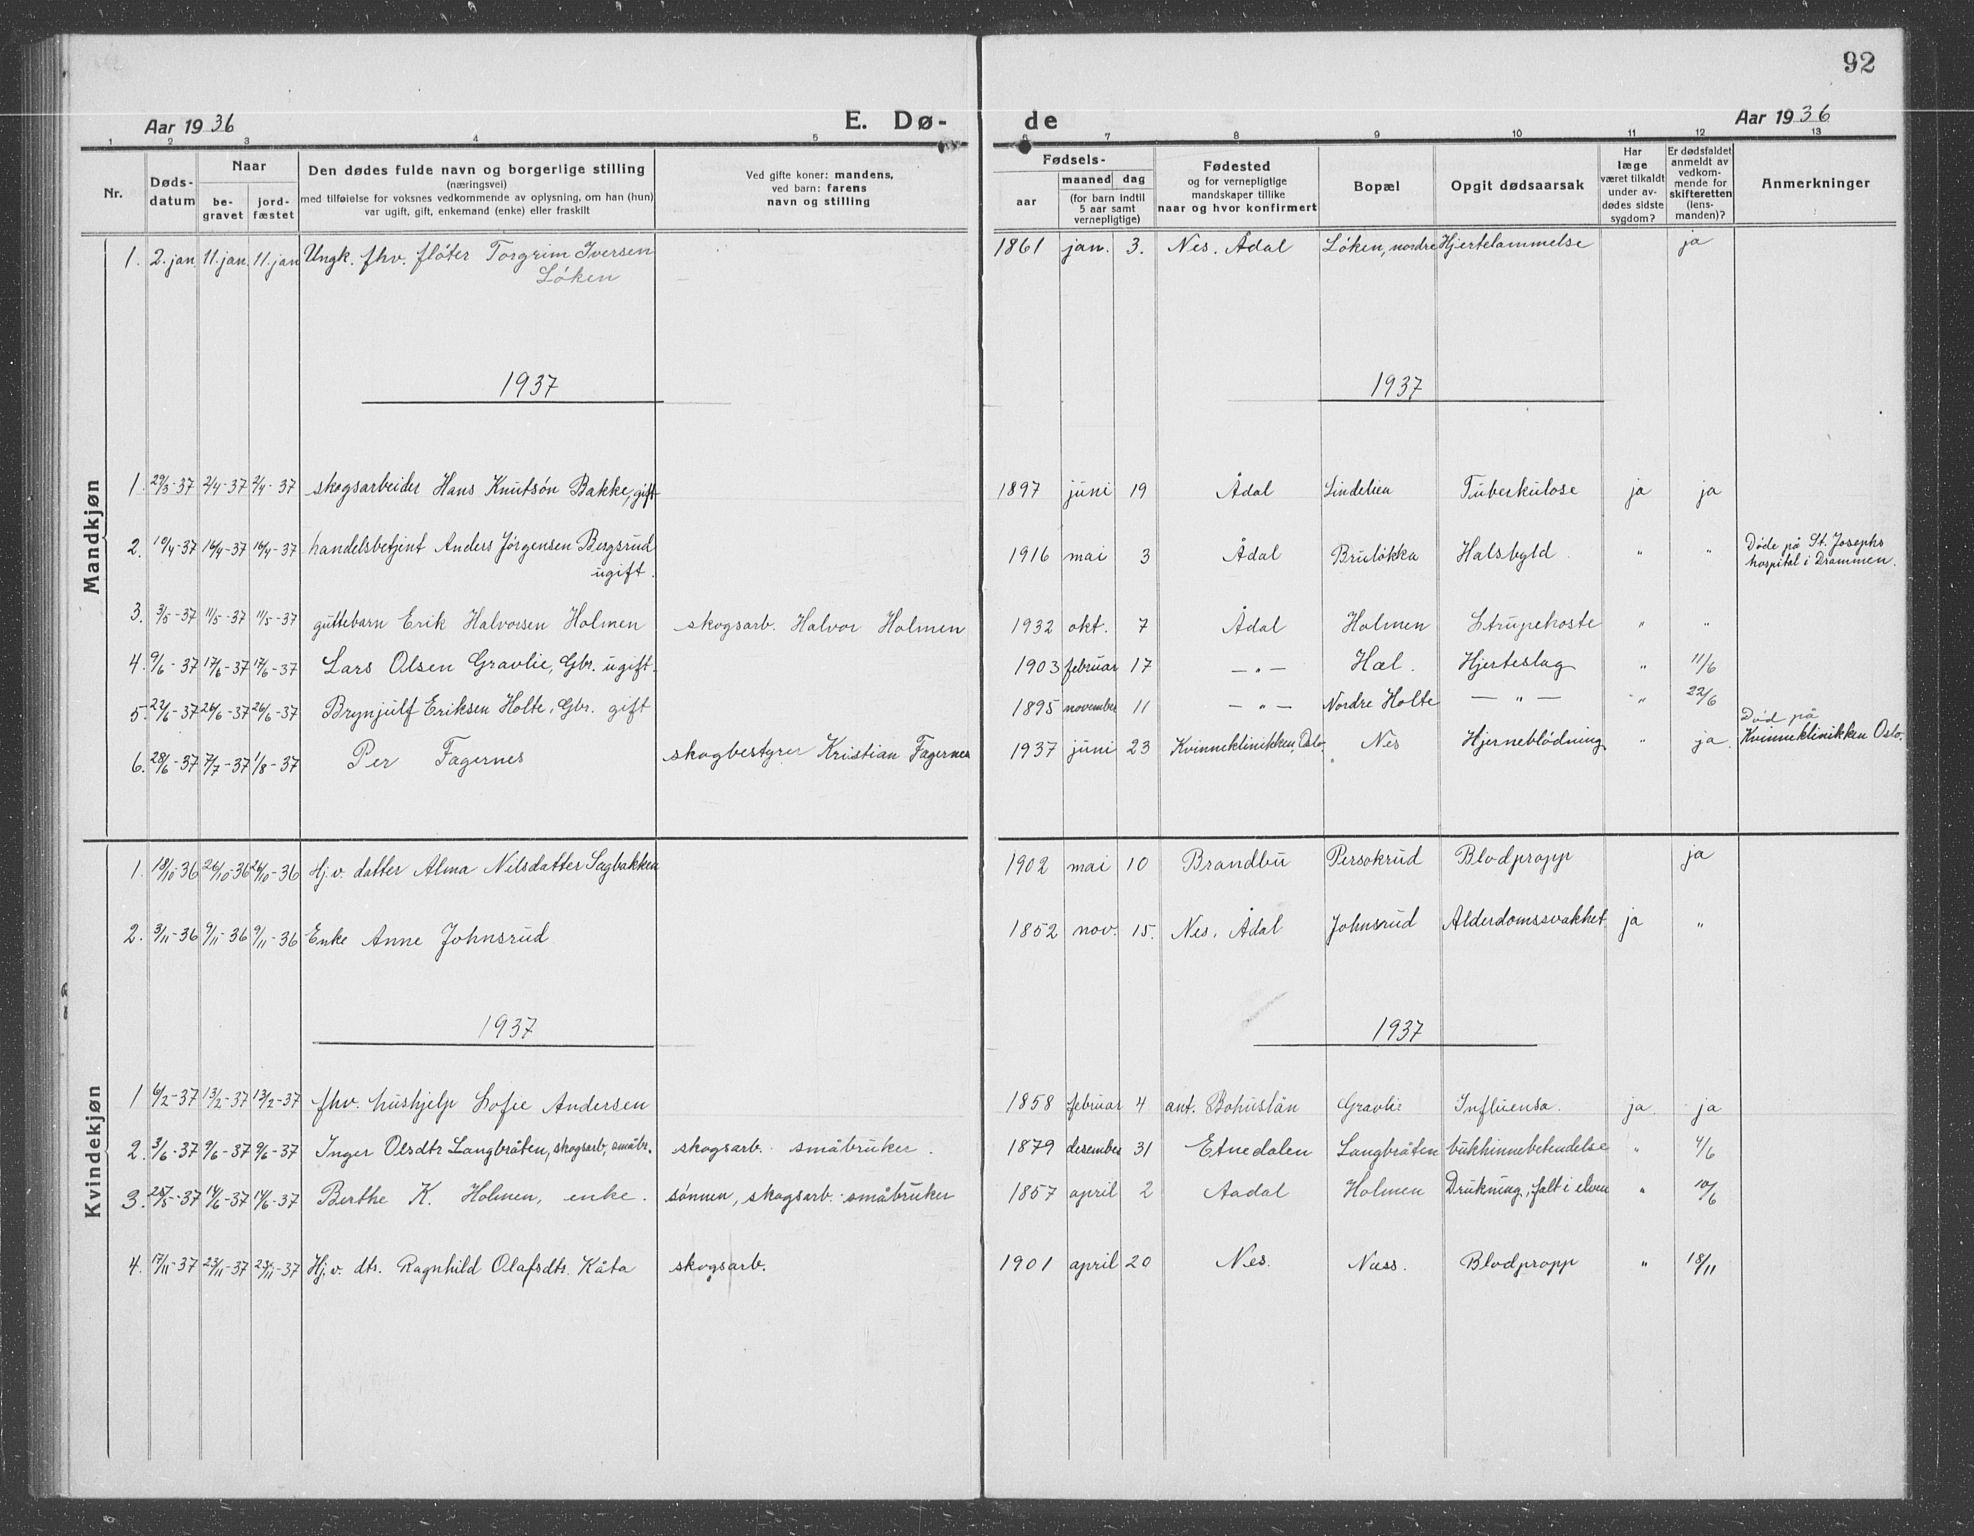 92
Aar 1936
E. Dø-
de
Aar 1936
1 2 3 4 5 6 7 8 9 10 11 12 13
Nr.
Døds-
datum
Naar
be-
gravet
jord-
fæstet
Den dødes fulde navn og borgerlige stilling
(næringsvei)
med tilføielse for voksnes vedkommende av oplysning, om han (hun)
var ugift, gift, enkemand (enke) eller fraskilt
Ved gifte koner: mandens,
ved barn: farens
navn og stilling
Fødsels-
aar
maaned dag
(for barn indtil
5 aar samt
vernepligtige)
Fødested
og for vernepligtige
mandskaper tillike
naar og hvor konfirmert
Bopæl
Opgit dødsaarsak
Har
læge
været tilkaldt
under av-
dødes sidste
sygdom?
Er dødsfaldet
anmeldt av
vedkom-
mende for
skifteretten
(lens-
manden)?
Anmerkninger
Mandkjøn
1. 2. jan 11. jan. 11. jan Ungk. fhv. fløter Torgrim Iversen 1861 jan. 3. Nes. Ådal Løken, nordre Hjertelammelse ja
Løken
1937 1937
1. 29/3-37 2/4-37 2/4-37 skogsarbeider Hans Knutsøn Bakke, gift 1897 juni 19 Ådal Lindelien Tuberkulose ja ja
2. 10/4-37 16/4-37 16/4-37 handelsbetjent Anders Jørgensen Bergsrud 1916 mai 3 Ådal Bruløkka Halsbyld " " Døde på St. Josephs
ugift. hospital i Drammen.
3. 3/5-37 11/5-37 11/5-37 guttebarn Erik Halvorsen Holmen skogsarb. Halvor Holmen 1932 okt. 7 Ådal Holmen Strupehoste " "
4. 9/6-37 17/6-37 17/6-37 Lars Olsen Gravlie, Gbr. ugift. 1903 februar 17 — " — Hæl. Hjerteslag " 11/6
5. 22/6-37 26/6-37 26/6-37 Brynjulf Eriksen Holte, Gbr. gift 1895 november 11 — " — Nordre Holte — " — " 22/6
Død på
6. 28/6-37 7/7-37 1/8-37 Per Fagernes skogbestyrer Kristian Fagernes 1937 juni 23 Kvinneklinikken, Oslo. Nes Hjerneblødning " ja. Kvinneklinikken Oslo.
Kvindekjøn
1. 18/10-36 26/10-36 26/10-36 Hj.v. datter Alma Nilsdatter Sagbakken 1902 mai 10 Brandbu Persokrud Blodpropp ja
2. 3/11-36 9/11-36 9/11-36 Enke Anne Johnsrud 1852 nov. 15. Nes. Ådal Johnsrud Alderdomssvakhet. ja "
1937 1937
1 6/2-37 13/2-37 13/2-37 fhv. hushjelp Sofie Andersen 1858 februar 4 ant. Bohuslän Gravlie Influensa. ja. ja
2. 3/6-37 9/6-37 9/6-37 Inger Olsdtr Langbråten, skogsarb, småbr. skogsarb. småbruker. 1879 desember 31 Etnedalen Langbråten bukhinnebetendelse " 4/6
3. 25/5-37 14/6-37 14/6-37 Berthe K. Holmen, enke. sønnen, skogsarb. småbruker 1857 april 2 Aadal Holmen Drukning, falt i elven " 10/6
4. 17/11-37 23/11-37 23/11-37 Hj.v. dtr. Ragnhild Olafsdtr. Kåta skogsarb. 1901 april 20 Nes. Næss. Blodpropp " 18/11